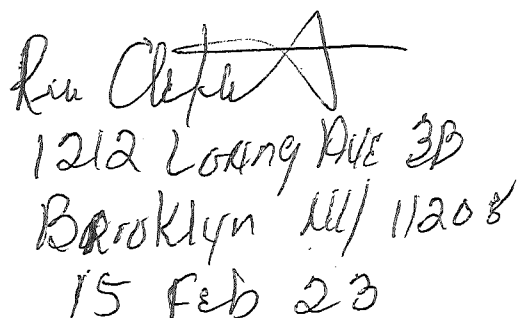 1212 Loring Ave 3B
Brooklyn NY 11208
15 Feb 23